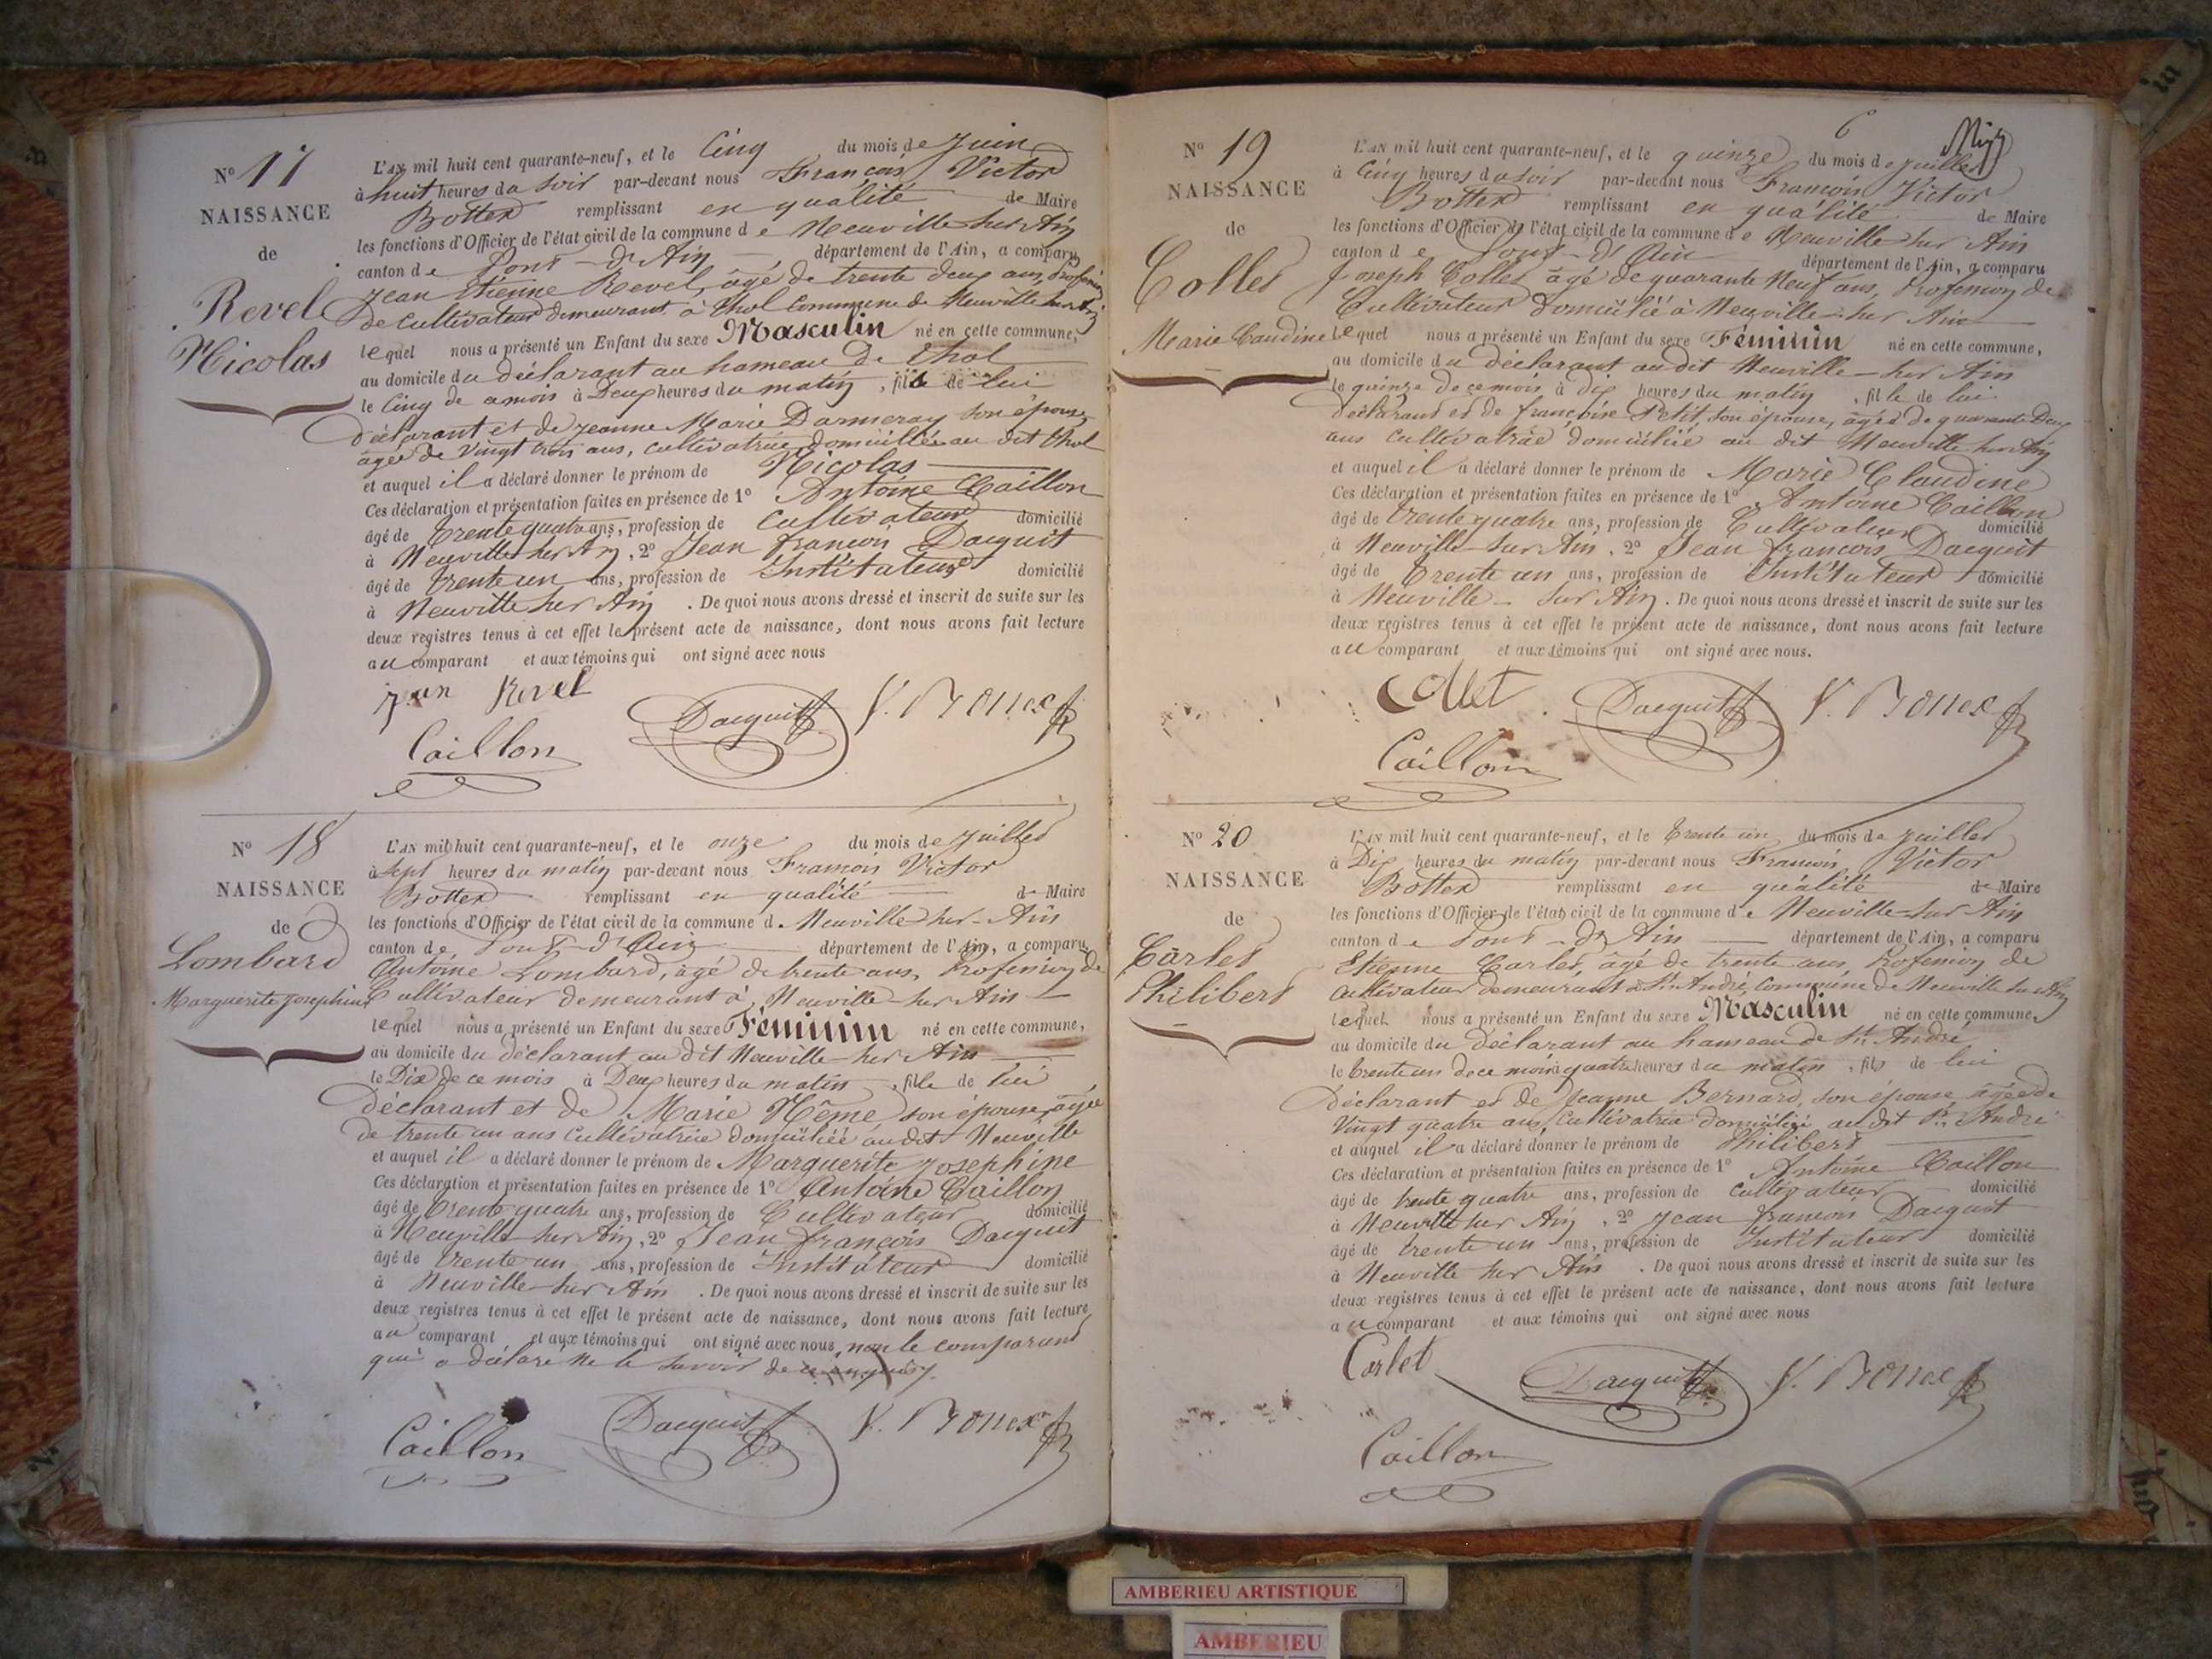 N° 17
NAISSANCE
de
Revel
Nicolas
L'AN mil huit cent quarante-neuf, et le Cinq du mois de Juin
à huit heures du Soir par-devant nous François Victor
Bottex remplissant en qualité de Maire
les fonctions d'Officier de l'état civil de la commune de Neuville sur Ain
canton de Pont-d'Ain département de l'Ain, a comparu
Jean Etienne Revel, âgé de trente deux ans, Profession
de Cultivateur demeurant à Thol Commune de Neuville sur Ain
lequel nous a présenté un Enfant du sexe Masculin né en cette commune,
au domicile du déclarant au hameau de Thol
le Cinq de ce mois à Deux heures du matin, fils de lui
déclarant et de Jeanne Marie Darmeray son épouse
âgée de Vingt trois ans, cultivatrice domiciliée au dit Thol
et auquel il a déclaré donner le prénom de Nicolas
Ces déclaration et présentation faites en présence de 1° Antoine Caillon
âgé de trente quatre ans, profession de Cultivateur domicilié
à Neuville sur Ain, 2° Jean françois Dacquit
âgé de trente un ans, profession de Instituteur domicilié
à Neuville sur Ain. De quoi nous avons dressé et inscrit de suite sur les
deux registres tenus à cet effet le présent acte de naissance, dont nous avons fait lecture
au comparant et aux témoins qui ont signé avec nous
Jean Revel Dacquit V. Bottex
Caillon
N° 18
NAISSANCE
de
Lombard
Marguerite Josephine
L'AN mil huit cent quarante-neuf, et le onze du mois de Juillet
à Sept heures du matin par-devant nous François Victor
Bottex remplissant en qualité de Maire
les fonctions d'Officier de l'état civil de la commune de Neuville sur-Ain
canton de Pont-d'Ain département de l'Ain, a comparu
Antoine Lombard, âgé de trente ans, Profession de
Cultivateur demeurant à Neuville-sur Ain
lequel nous a présenté un Enfant du sexe Féminin né en cette commune,
au domicile du déclarant au dit Neuville-sur Ain
le Dix de ce mois à Deux heures du matin, fille de lui
déclarant et de Marie Même son épouse, âgée
de trente un ans Cultivatrice domiciliée au dit Neuville
et auquel il a déclaré donner le prénom de Marguerite Josephine
Ces déclaration et présentation faites en présence de 1° Antoine Caillon
âgé de trente quatre ans, profession de Cultivateur domicilié
à Neuville-sur Ain, 2° Jean françois Dacquit
âgé de trente un ans, profession de Instituteur domicilié
à Neuville-sur Ain. De quoi nous avons dressé et inscrit de suite sur les
deux registres tenus à cet effet le présent acte de naissance, dont nous avons fait lecture
au comparant et aux témoins qui ont signé avec nous, non le comparant
qui a déclaré ne le savoir de ce enquis
Caillon Dacquit V. Bottex
6
N° 19
NAISSANCE
de
Collet
Marie Caudine
L'AN mil huit cent quarante-neuf, et le quinze du mois de Juillet
à Cinq heures du soir par-devant nous François Victor
Bottex remplissant en qualité de Maire
les fonctions d'Officier de l'état civil de la commune de Neuville-sur Ain
canton de Pont-d'Ain département de l'Ain, a comparu
Joseph Collet âgé de quarante Neuf ans, Profession de
Cultivateur Domicilié à Neuville-sur Ain
lequel nous a présenté un Enfant du sexe Féminin né en cette commune,
au domicile du déclarant audit Neuville-sur Ain
le quinze de ce mois à dix heures du matin, fille de lui
déclarant et de françoise Petit, son épouse, âgée de quarante Deux
ans Cultivatrice domiciliée au dit Neuville sur Ain
et auquel il a déclaré donner le prénom de Marie Claudine
Ces déclaration et présentation faites en présence de 1° Antoine Caillon
âgé de trente quatre ans, profession de Cultivateur domicilié
à Neuville-sur Ain, 2° Jean françois Dacquit
âgé de trente un ans, profession de Instituteur domicilié
à Neuville-sur Ain. De quoi nous avons dressé et inscrit de suite sur les
deux registres tenus à cet effet le présent acte de naissance, dont nous avons fait lecture
au comparant et aux témoins qui ont signé avec nous.
Collet Dacquit V. Bottex
Caillon
N° 20
NAISSANCE
de
Carlet
Philibert
L'AN mil huit cent quarante-neuf, et le trente un du mois de Juillet
à Dix heures du matin par-devant nous François Victor
Bottex remplissant en qualité de Maire
les fonctions d'Officier de l'état civil de la commune de Neuville-sur Ain
canton de Pont-d'Ain département de l'Ain, a comparu
Etienne Carlet, âgé de trente ans, Profession de
Cultivateur demeurant à St. André, Commune de Neuville sur Ain
lequel nous a présenté un Enfant du sexe Masculin né en cette commune,
au domicile du déclarant au hameau de St. André
le trente un de ce mois à quatre heures du matin, fils de lui
Déclarant et de Jeanne Bernard, son épouse âgée de
Vingt quatre ans, Cultivatrice domiciliée au dit St. André
et auquel il a déclaré donner le prénom de Philibert
Ces déclaration et présentation faites en présence de 1° Antoine Caillon
âgé de trente quatre ans, profession de Cultivateur domicilié
à Neuville sur Ain, 2° Jean françois Dacquit
âgé de trente un ans, profession de Instituteur domicilié
à Neuville sur Ain. De quoi nous avons dressé et inscrit de suite sur les
deux registres tenus à cet effet le présent acte de naissance, dont nous avons fait lecture
au comparant et aux témoins qui ont signé avec nous
Carlet Dacquit V. Bottex
Caillon
AMBERIEU ARTISTIQUE
AMBERIEU